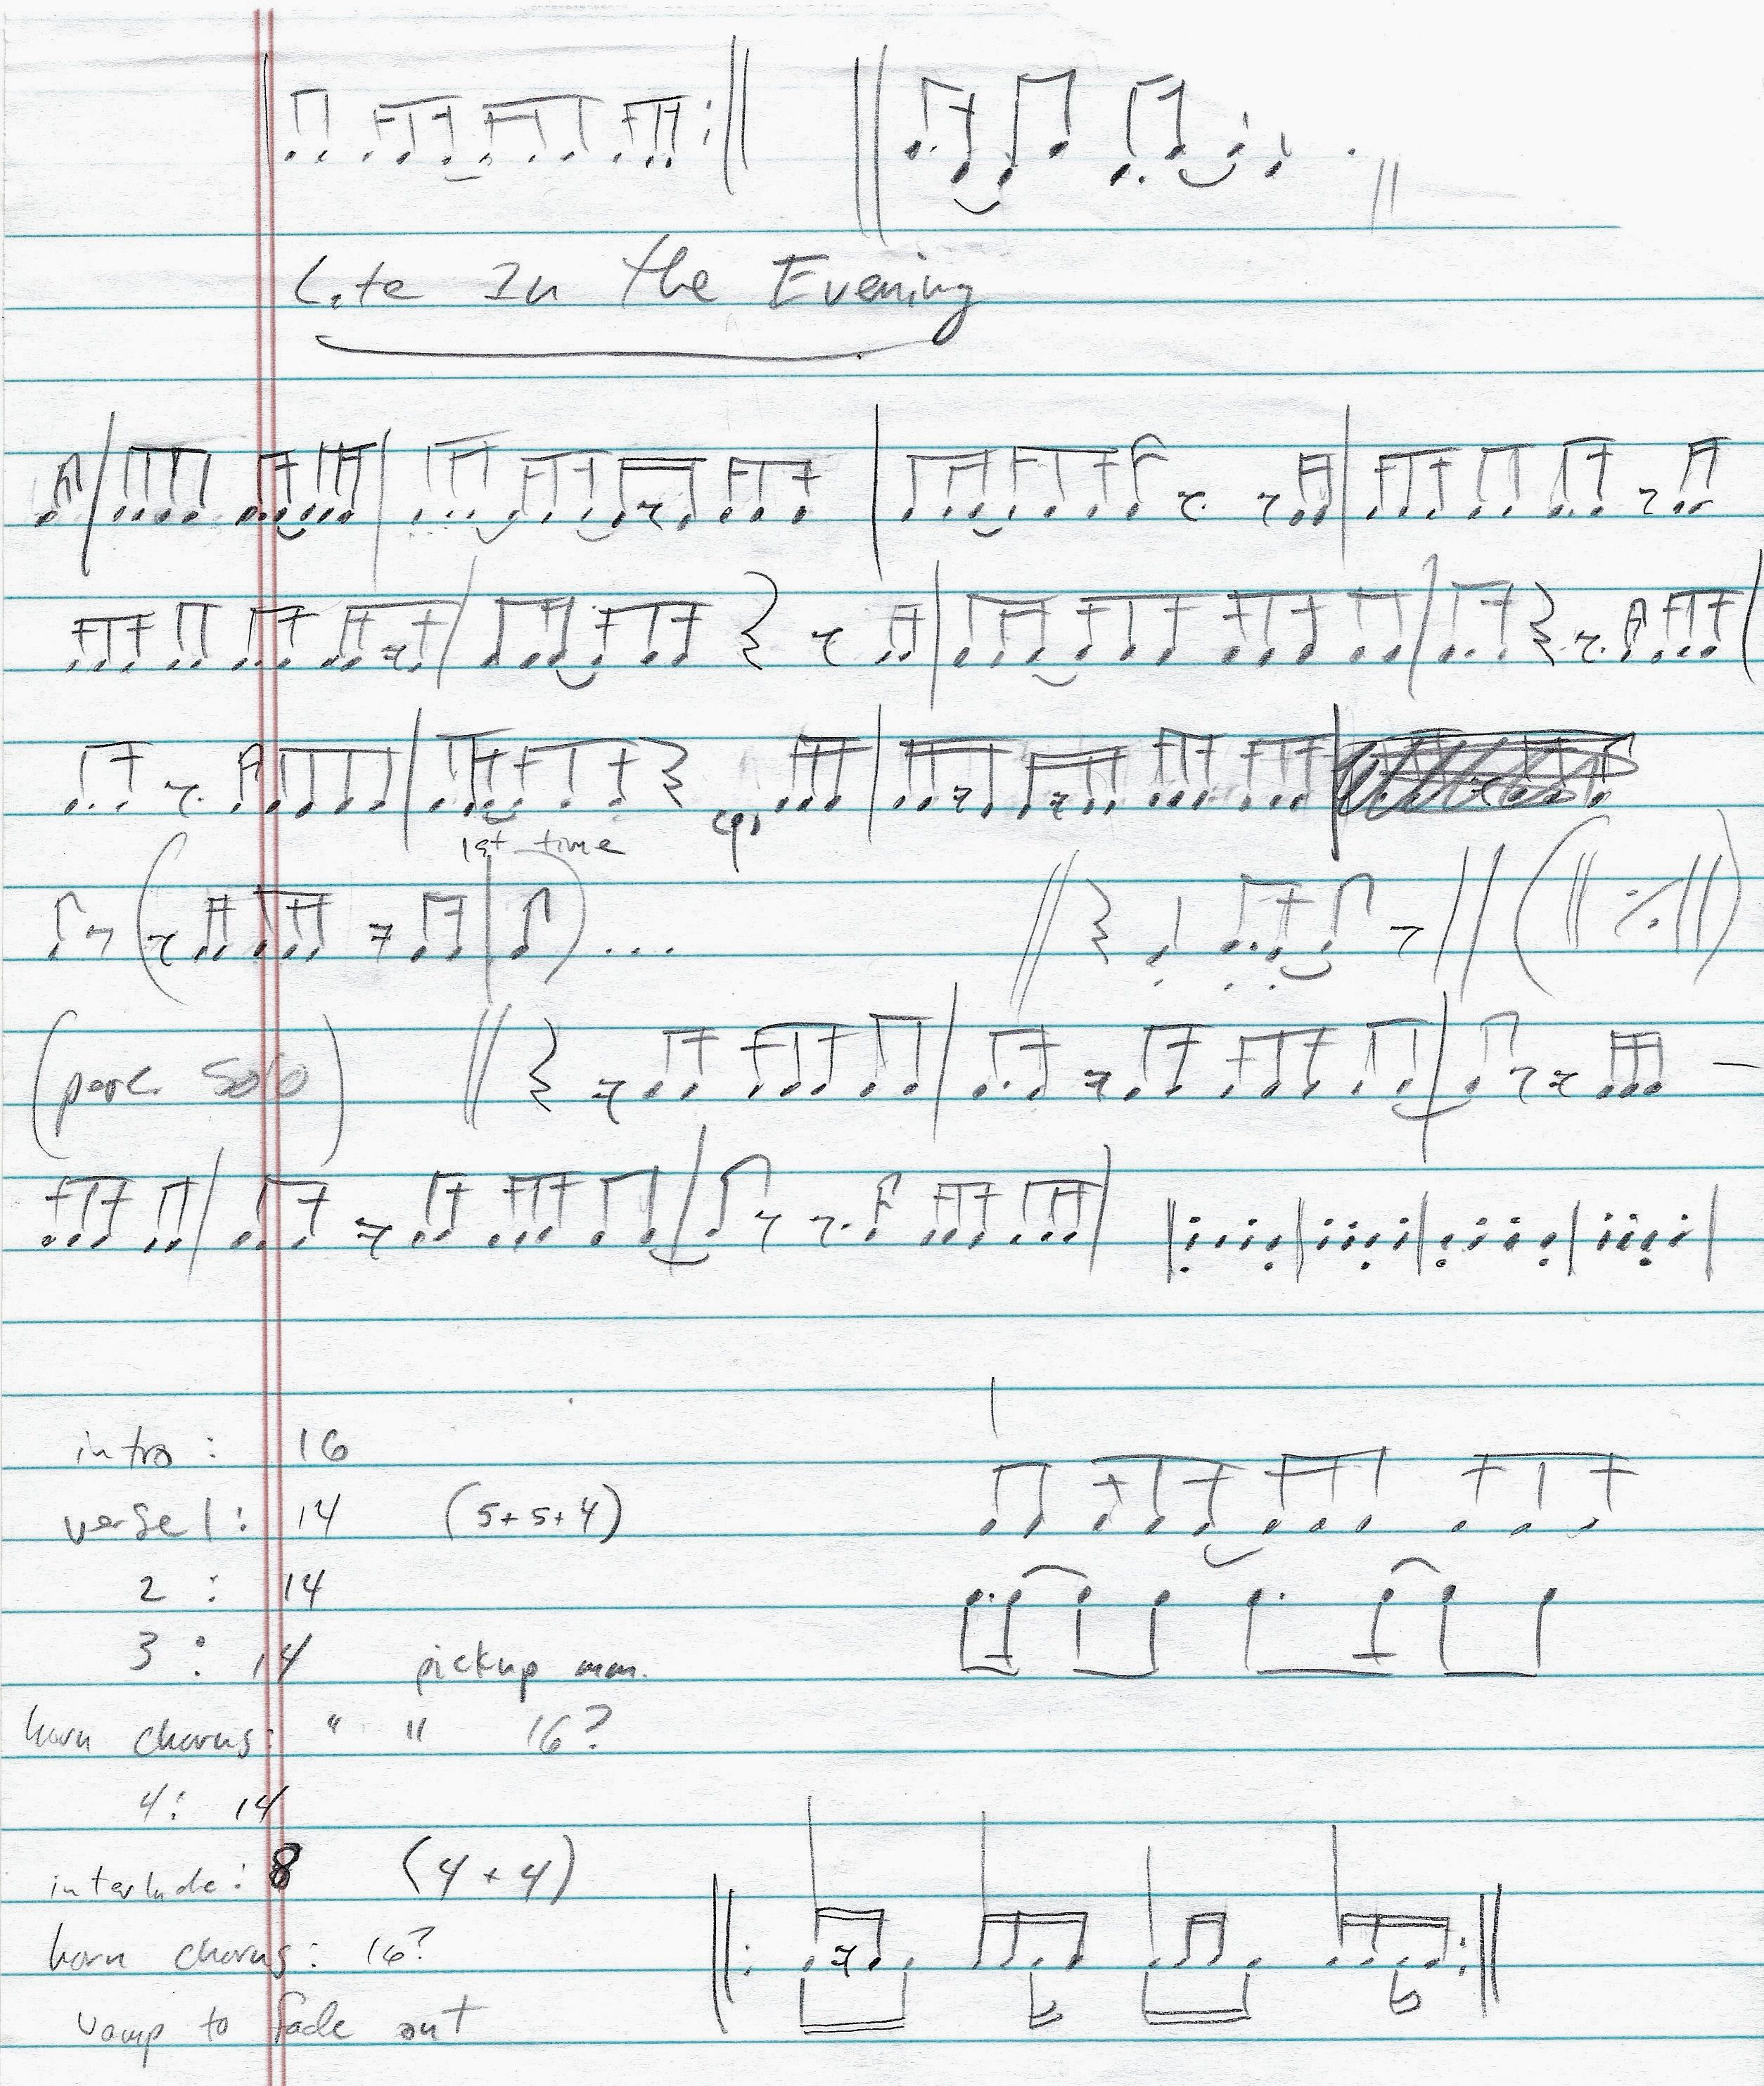 Late In the Evening
1st time
(perc. Solo)
intro: 16
verse 1: 14 (5+5+4)
2: 14
3: 14 pickup mm.
horn chorus: " " 16?
4: 14
interlude: 8 (4+4)
horn chorus: 16?
vamp to fade out